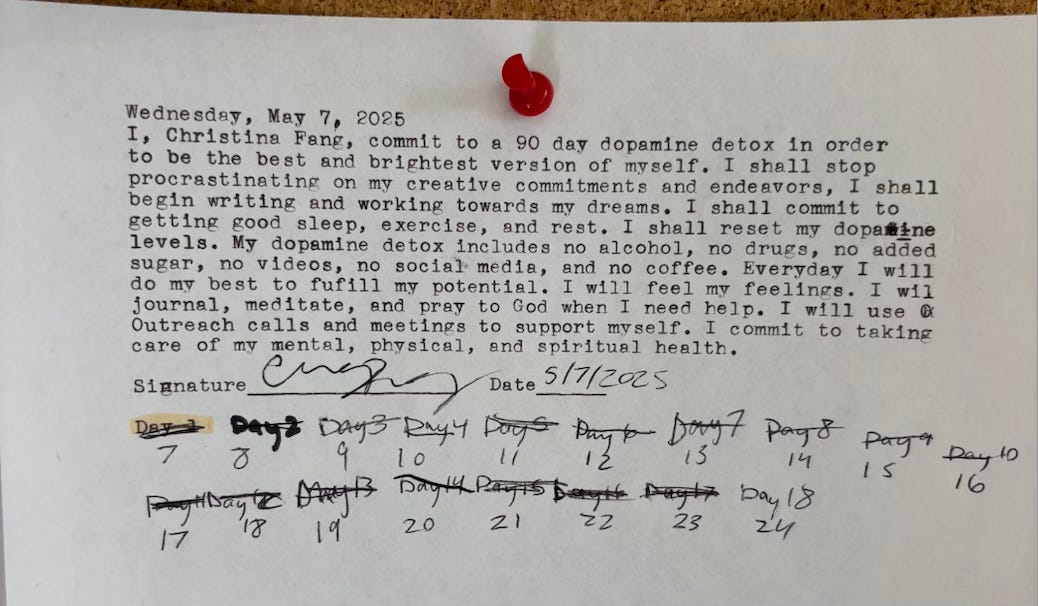 Wednesday, May 7, 2025
I, Christina Fang, commit to a 90 day dopamine detox in order
to be the best and brightest version of myself. I shall stop
procrastinating on my creative commitments and endeavors, I shall
begin writing and working towards my dreams. I shall commit to
getting good sleep, exercise, and rest. I shall reset my dopamine
levels. My dopamine detox includes no alcohol, no drugs, no added
sugar, no videos, no social media, and no coffee. Everyday I will
do my best to fufill my potential. I will feel my feelings. I wil
journal, meditate, and pray to God when I need help. I will use
Outreach calls and meetings to support myself. I commit to taking
care of my mental, physical, and spiritual health.
Signature Date 5/7/2025
Day 1 Day 2 Day 3 Day 4 Day 5 Day 6 Day 7 Day 8 Day 9 Day 10
7 8 9 10 11 12 13 14 15 16
Day 11 Day 12 Day 13 Day 14 Day 15 Day 16 Day 17 Day 18
17 18 19 20 21 22 23 24